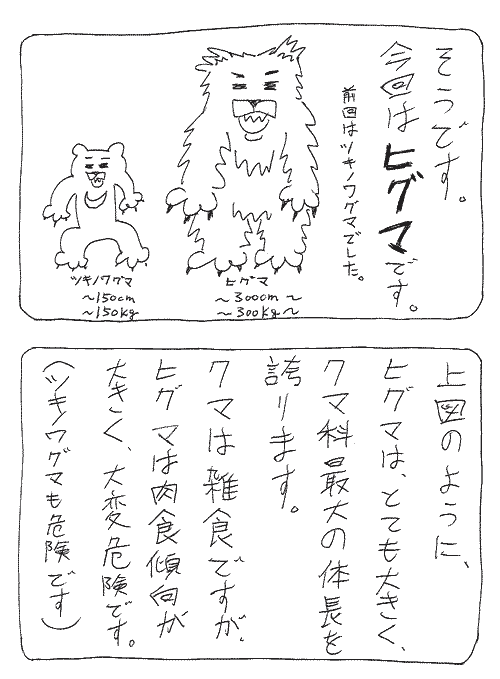 そうです。
今回はヒグマです。
前回はツキノワグマでした。
ヒグマ
～300cm～
～300kg～
ツキノワグマ
～150cm
～150kg
上図のように、
ヒグマは、とても大きく、
クマ科最大の体長を
誇ります。
クマは雑食ですが、
ヒグマは肉食傾向が
大きく、大変危険です。
(ツキノワグマも危険です)